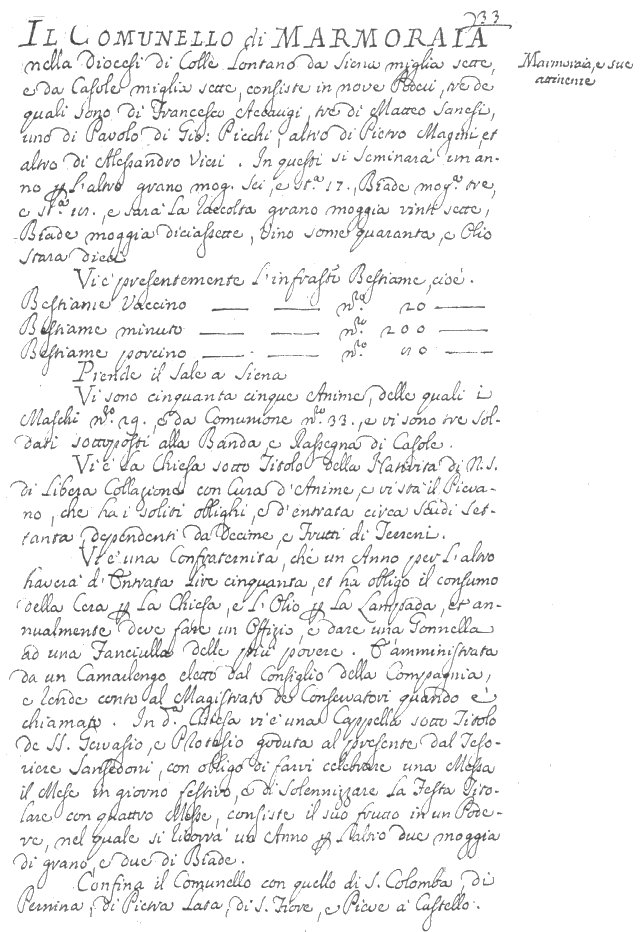 233
IL COMUNELLO di MARMORAIA
Marmoraia, e sue
attinenze
nella Diocesi di Colle Lontano da Siena miglia sette,
e da Casole miglia sette, consiste in nove Poderi, tre de
quali sono di Francesco Accarigi, tre di Matteo Sanesi,
uno di Pavolo di Gio: Picchi, altro di Pietro Magini, et
altro di Alessandro Vieri. In questi si seminarà un an-
no p L'altro grano mog. sei, e st.ª 17., Biade mog.ª tre,
e st.ª e sarà La raccolta grano moggia vinti sette,
Biade moggia diciassette, Vino some quaranta, e Olio
stara dieci.
Vi è presentemente L'infrastõ Bestiame, cioè.
Bestiame Vaccino — — n.ro 20 —
Bestiame minuto — — n.ro 200 —
Bestiame porcino — — n.ro —
Prende il Sale a Siena
Vi sono cinquanta cinque Anime, delle quali i
Maschi n.ro 29., e da Comunione n.ro 33., e vi sono tre sol-
dati sottoposti alla Banda e Rassegna di Casole.
Vi è La Chiesa sotto Titolo della Natività di N.S.
di Libera Collazione con Cura d'Anime, e vi stà il Pieva-
no, che ha i soliti oblighi, e d'entrata circa scudi set-
tanta, dependenti da Decime, e Frutti di Terreni.
Vi è una Confraternita, che un Anno per L'altro
haverà d'Entrata Lire cinquanta, et ha obligo il consumo
della Cera p La Chiesa, e L'Olio p La Lampada, et an-
nualmente deve fare un Offizio, e dare una Gonnella
ad una Fanciulla delle più povere. È amministrata
da un Camarlengo eletto dal Consiglio della Compagnia,
e rende conto al Magistrato de Conservatori quando è
chiamato. In d.ª Chiesa vi è una Cappella sotto Titolo
de SS. Gervasio, e Protasio goduta al presente dal Teso-
riere Sansedoni, con obligo di farvi celebrare una Messa
il Mese in giorno festivo, e di solennizzare La Festa Tito-
lare con quattro Messe, consiste il suo frutto in un Pode-
re, nel quale si ricorrà un Anno p L'altro due moggia
di grano, e due di Biade.
Confina il Comunello con quello di S. Colomba, di
Pernina, di Pietra Lata, di S. Fiore, e Pieve à Castello.